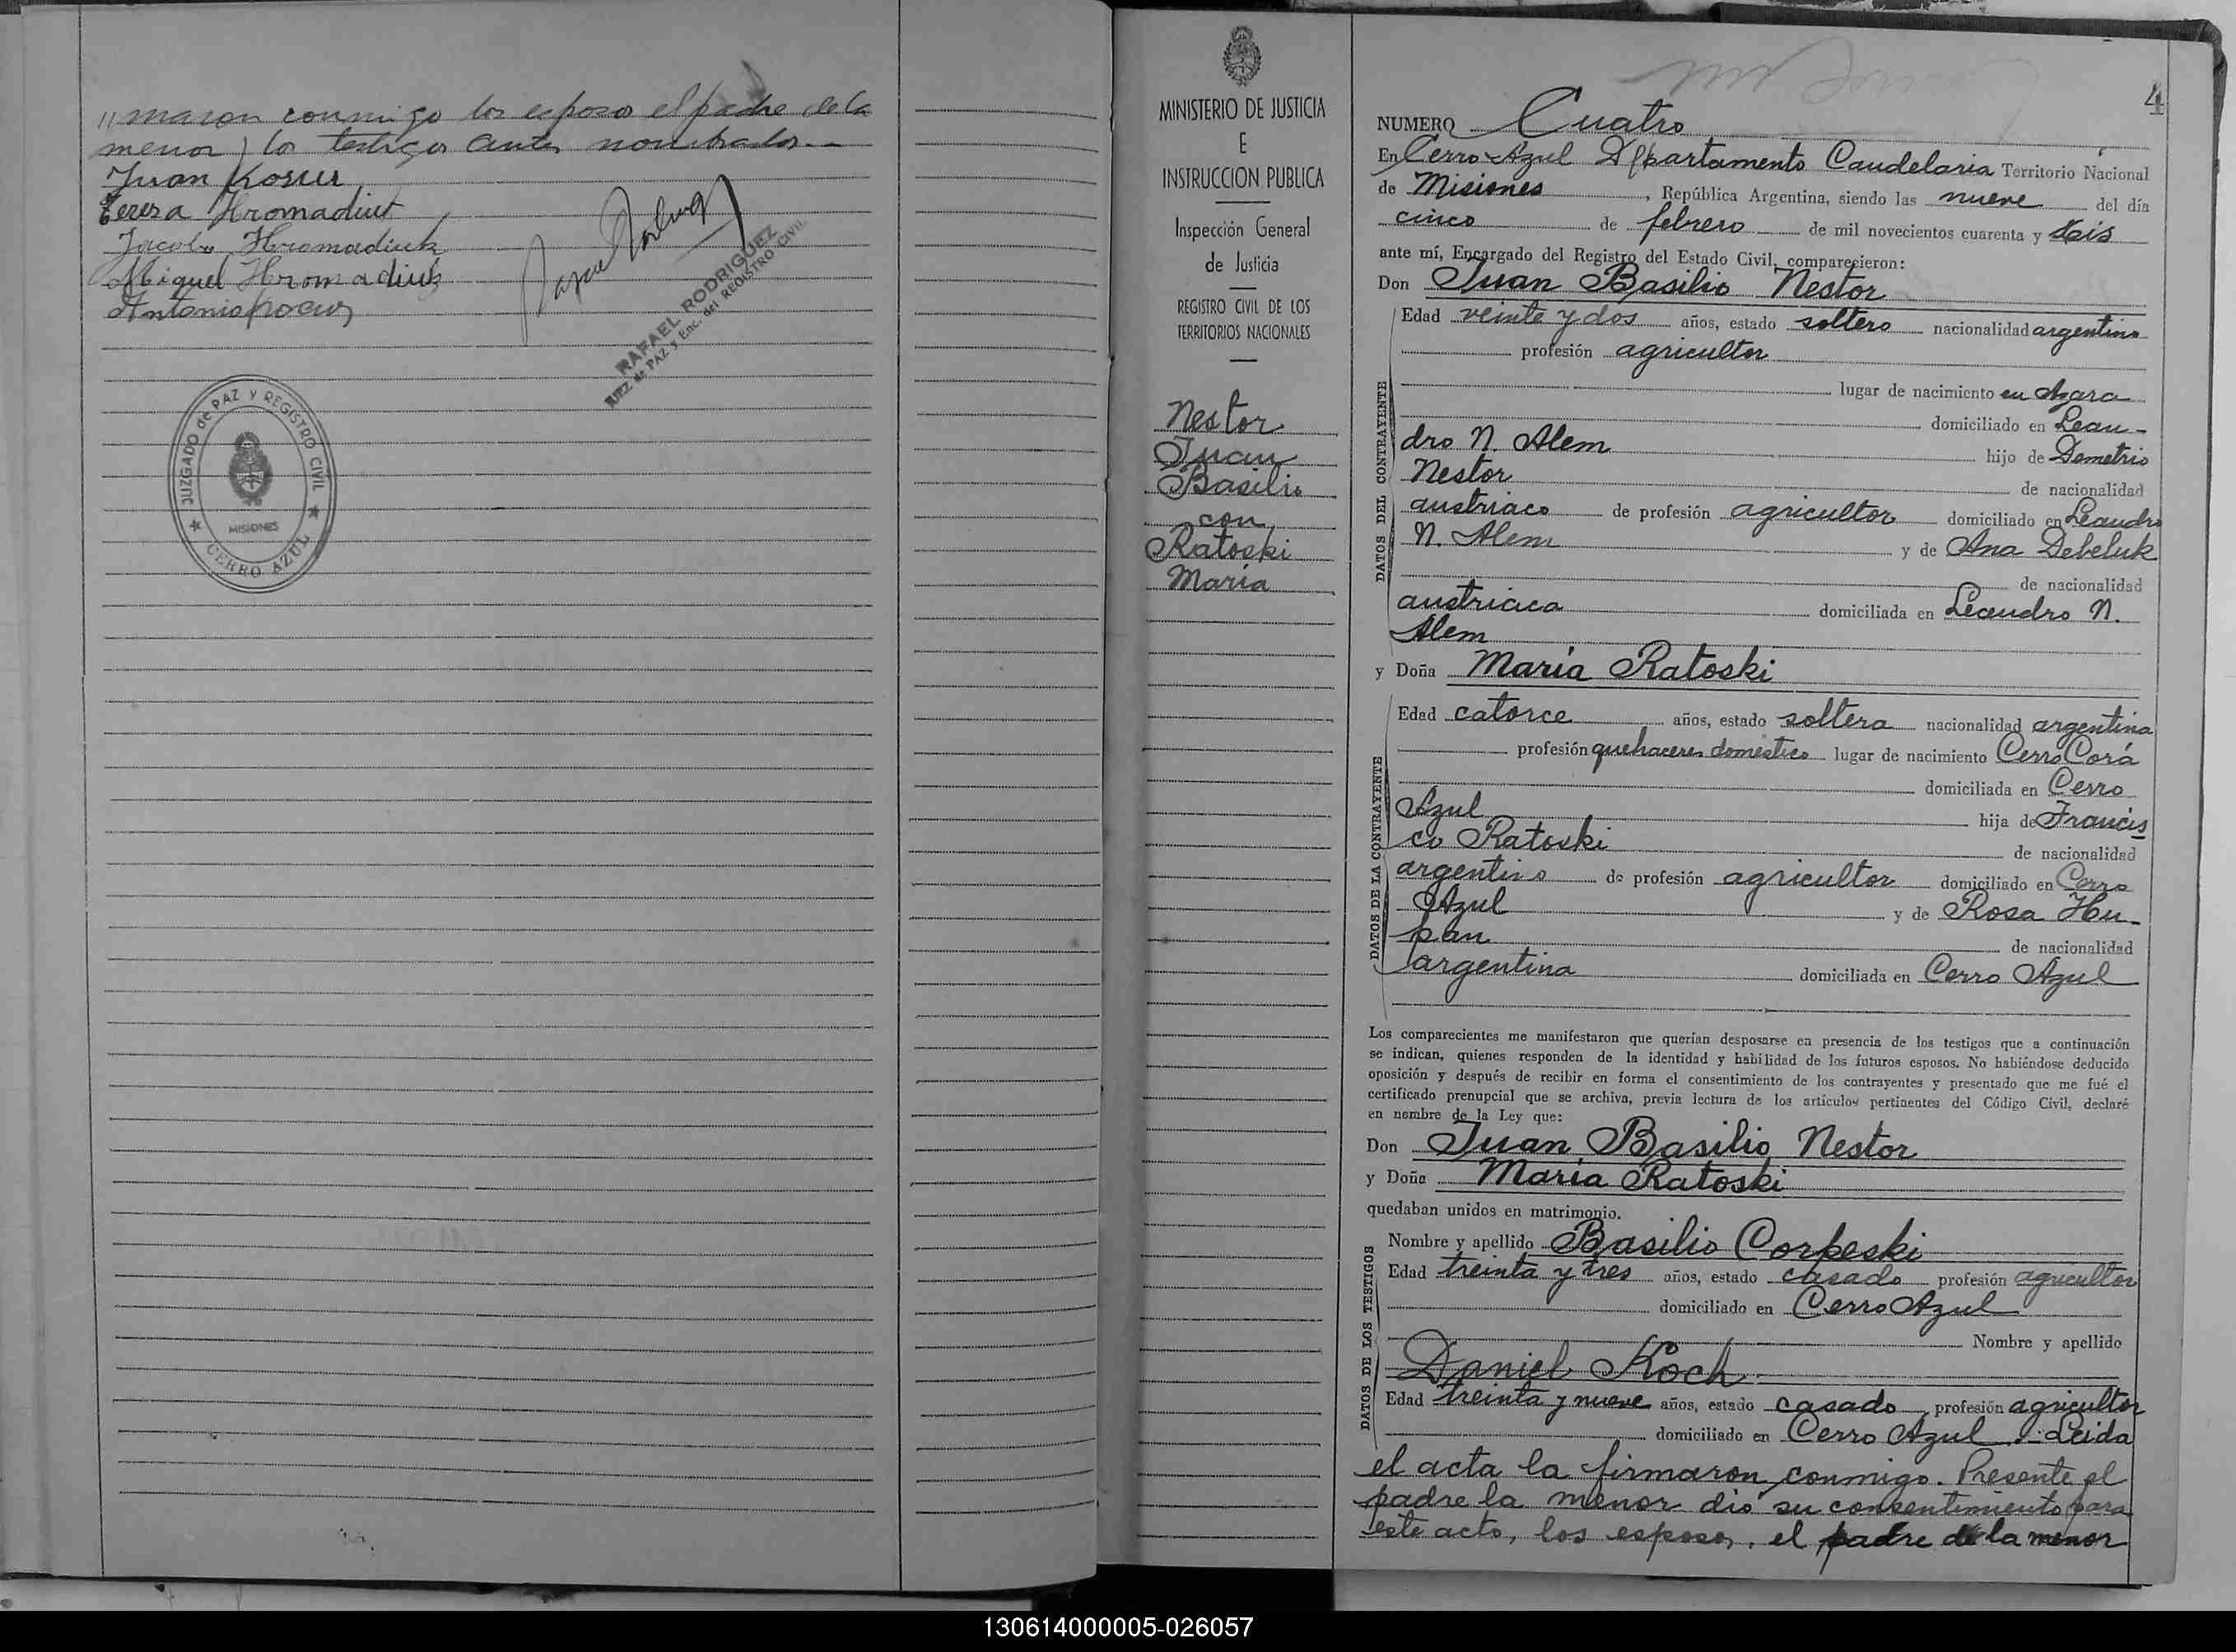 // maron conmigo los esposo el padre de la
menor y los testigos antes nombrados.--
Juan Kosur
Tereza Hromadiuk
Jacobo Hromadiuk
Miguel Hromadiuk
Antonio
RAFAEL RODRIGUEZ
JUEZ de PAZ y Enc. del REGISTRO CIVIL
JUZGADO de PAZ Y REGISTRO CIVIL
MISIONES
★ CERRO AZUL ★
MINISTERIO DE JUSTICIA
E
INSTRUCCION PUBLICA
Inspección General
de Justicia
REGISTRO CIVIL DE LOS
TERRITORIOS NACIONALES
Nestor
Juan
Basilio
con
Ratoski
María
4
NUMERO Cuatro
En Cerro Azul Departamento Candelaria Territorio Nacional
de Misiones, República Argentina, siendo las nueve del día
cinco de febrero de mil novecientos cuarenta y seis
ante mí, Encargado del Registro del Estado Civil, comparecieron:
Don Juan Basilio Nestor
DATOS DEL CONTRAYENTE
Edad veinte y dos años, estado soltero nacionalidad argentino
profesión agricultor
lugar de nacimiento en Azara
domiciliado en Lean-
dro N. Alem hijo de Demetrio
Nestor de nacionalidad
austriaco de profesión agricultor domiciliado en Leandro
N. Alem y de Ana Debeluk
de nacionalidad
austriaca domiciliada en Leandro N.
Alem
y Doña María Ratoski
DATOS DE LA CONTRAYENTE
Edad catorce años, estado soltera nacionalidad argentina
profesión quehaceres domestico lugar de nacimiento Cerro Corá
domiciliada en Cerro
Azul hija de Francis
co Ratoski de nacionalidad
argentino de profesión agricultor domiciliado en Cerro
Azul y de Rosa Hu-
pan de nacionalidad
argentina domiciliada en Cerro Azul
Los comparecientes me manifestaron que querían desposarse en presencia de los testigos que a continuación
se indican, quienes responden de la identidad y habilidad de los futuros esposos. No habiéndose deducido
oposición y después de recibir en forma el consentimiento de los contrayentes y presentado que me fué el
certificado prenupcial que se archiva, previa lectura de los artículos pertinentes del Código Civil, declaré
en nombre de la Ley que:
Don Juan Basilio Nestor
y Doña María Ratoski
quedaban unidos en matrimonio.
DATOS DE LOS TESTIGOS
Nombre y apellido Basilio Corpeski
Edad treinta y tres años, estado casado profesión agricultor
domiciliado en Cerro Azul
Nombre y apellido
Daniel Koch
Edad treinta y nueve años, estado casado, profesión agricultor
domiciliado en Cerro Azul.- Leida
el acta la firmaron conmigo. Presente el
padre la menor dió su consentimiento para
este acto, los esposos, el padre de la menor
130614000005-026057